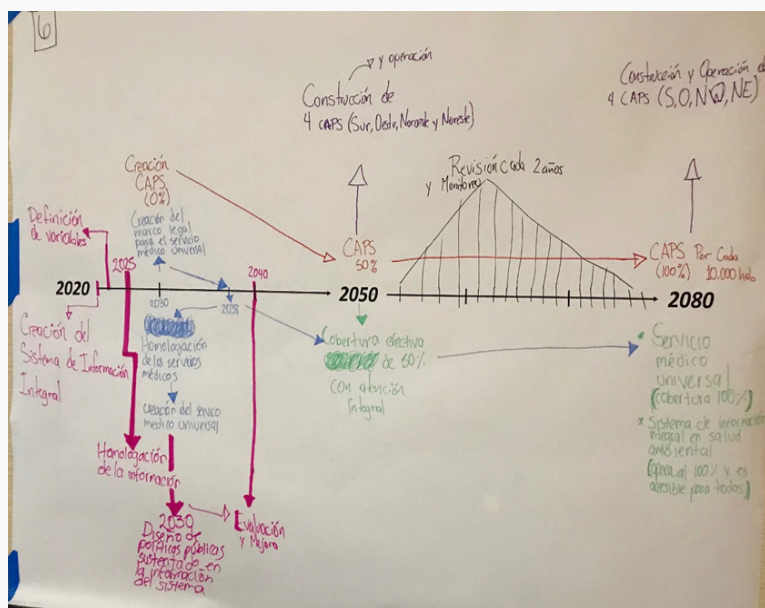 6
y operación
Construcción de
4 CAPS (Sur, Oeste, Noroeste y Noreste)
Construcción y Operación de
4 CAPS (S,O,NO,NE)
Creación
CAPS
(0%)
Revisión cada 2 años
y Monitoreo
Definición
de variables
Creación del
marco legal
para el servicio
médico universal
CAPS
50%
CAPS Por Cada
(100%) 10.000 hab
2025
2040
2020
2030
2035
2050
2080
Creación del
Sistema de Información
Integral
Homologación
de los servicios
médicos
Creación del
médico universal
Cobertura efectivo
de 50%
con atención
Integral
* Servicio
médico
universal
(cobertura 100%)
* Sistema de información
integral en salud
ambiental
(opera al 100% y es
accesible para todos)
Homologación
de la información
2030
Diseño de
políticas públicas
sustentado en
la información
del sistema
Evaluación
y Mejora